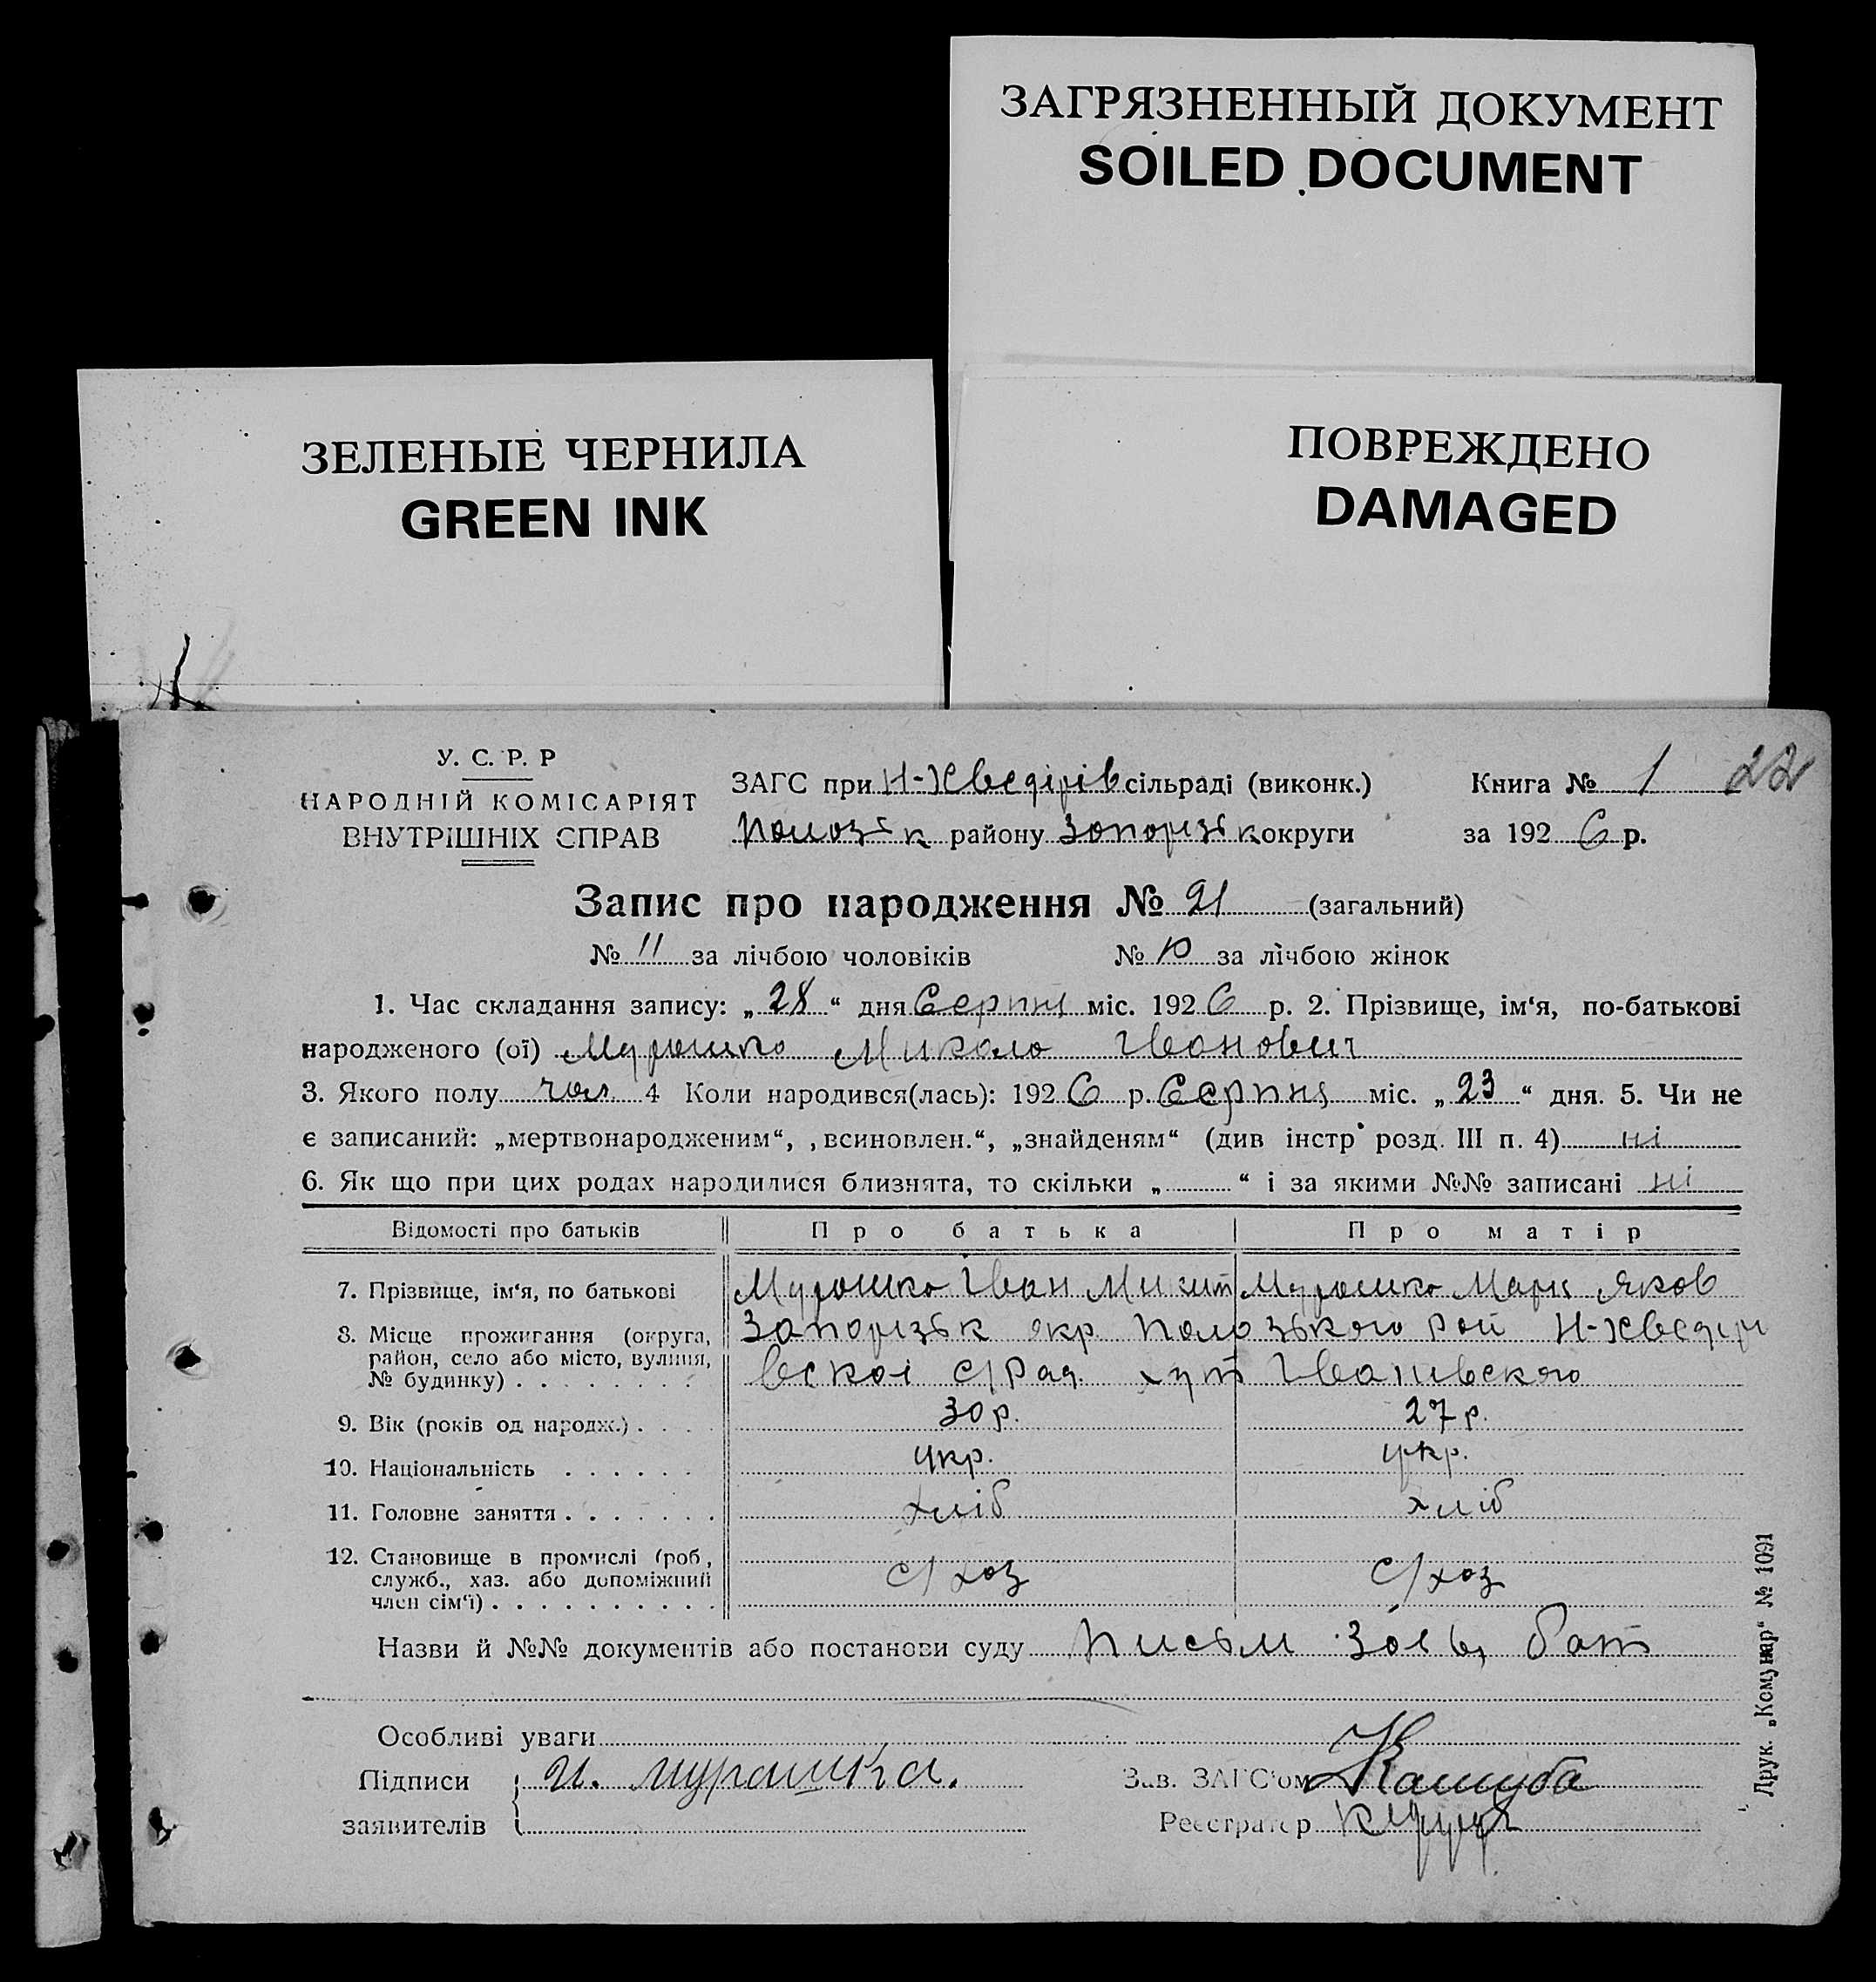 ЗАГРЯЗНЕННЫЙ ДОКУМЕНТ
SOILED DOCUMENT
ЗЕЛЕНЫЕ ЧЕРНИЛА
GREEN INK
ПОВРЕЖДЕНО
DAMAGED
У. С. Р. Р
НАРОДНІЙ КОМІСАРІЯТ
ВНУТРІШНІХ СПРАВ
ЗАГС при Н-Хведірів сільраді (виконк.)
Полозьк району Запорізьк округи
Книга № 1 22
за 1926 р.
Запис про народження № 21 (загальний)
№ 11 за лічбою чоловіків № 10 за лічбою жінок
1. Час складання запису: „28“ дня Серпня міс. 1926 р. 2. Прізвище, ім‘я, по-батькові
народженого (ої) Мурашко Микола Іванович
3. Якого полу чол. 4 Коли народився(лась): 1926 р. Серпня міс. „23“ дня. 5. Чи не
є записаний: „мертвонародженим“, ‚всиновлен.“, „знайденям“ (див інстр розд. III п. 4) ні
6. Як що при цих родах народилися близнята, то скільки „ “ і за якими №№ записані ні
Відомості про батьків Про батька Про матір
7. Прізвище, ім‘я, по батькові Мурашко Іван Микит Мурашко Марія Яков
8. Місце проживання (округа, Запорізьк окр. Полозького рай Н-Хведірі
район, село або місто, вулиця, вської с/рад. хут Івашівського
№ будинку)
9. Вік (років од народж.) 30 р. 27 р.
10. Національність укр. укр.
11. Головне заняття хліб хліб
12. Становище в промислі (роб,
служб., хаз. або допоміжний с/хоз с/хоз
член сім‘ї)
Назви й №№ документів або постанови суду письм заяв, бат
Особливі уваги
Підписи И. Мурашка.
заявителів
Зав. ЗАГС'ом Кашуба
Реєстратор
Друк. „Комунар“ № 1091